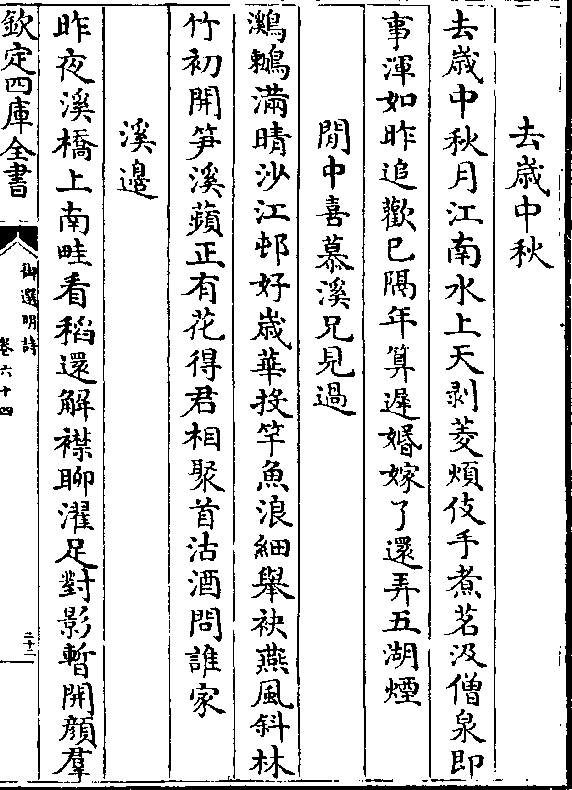 去歲中秋
去歲中秋月江南水上天剥菱煩伎手煮茗汲僧泉即
事渾如昨追歡已隔年算遲婚嫁了還弄五湖煙
閒中喜慕溪兄見過
鸂鶒滿晴沙江邨好歲華投竿魚浪細舉袂燕風斜林
竹初開笋溪蘋正有花得君相聚首沽酒問誰家
溪邊
昨夜溪橋上南畦看稻還解襟聊濯足對影暫開顔羣
欽定四庫全書
御選明詩
卷六十四
二十二